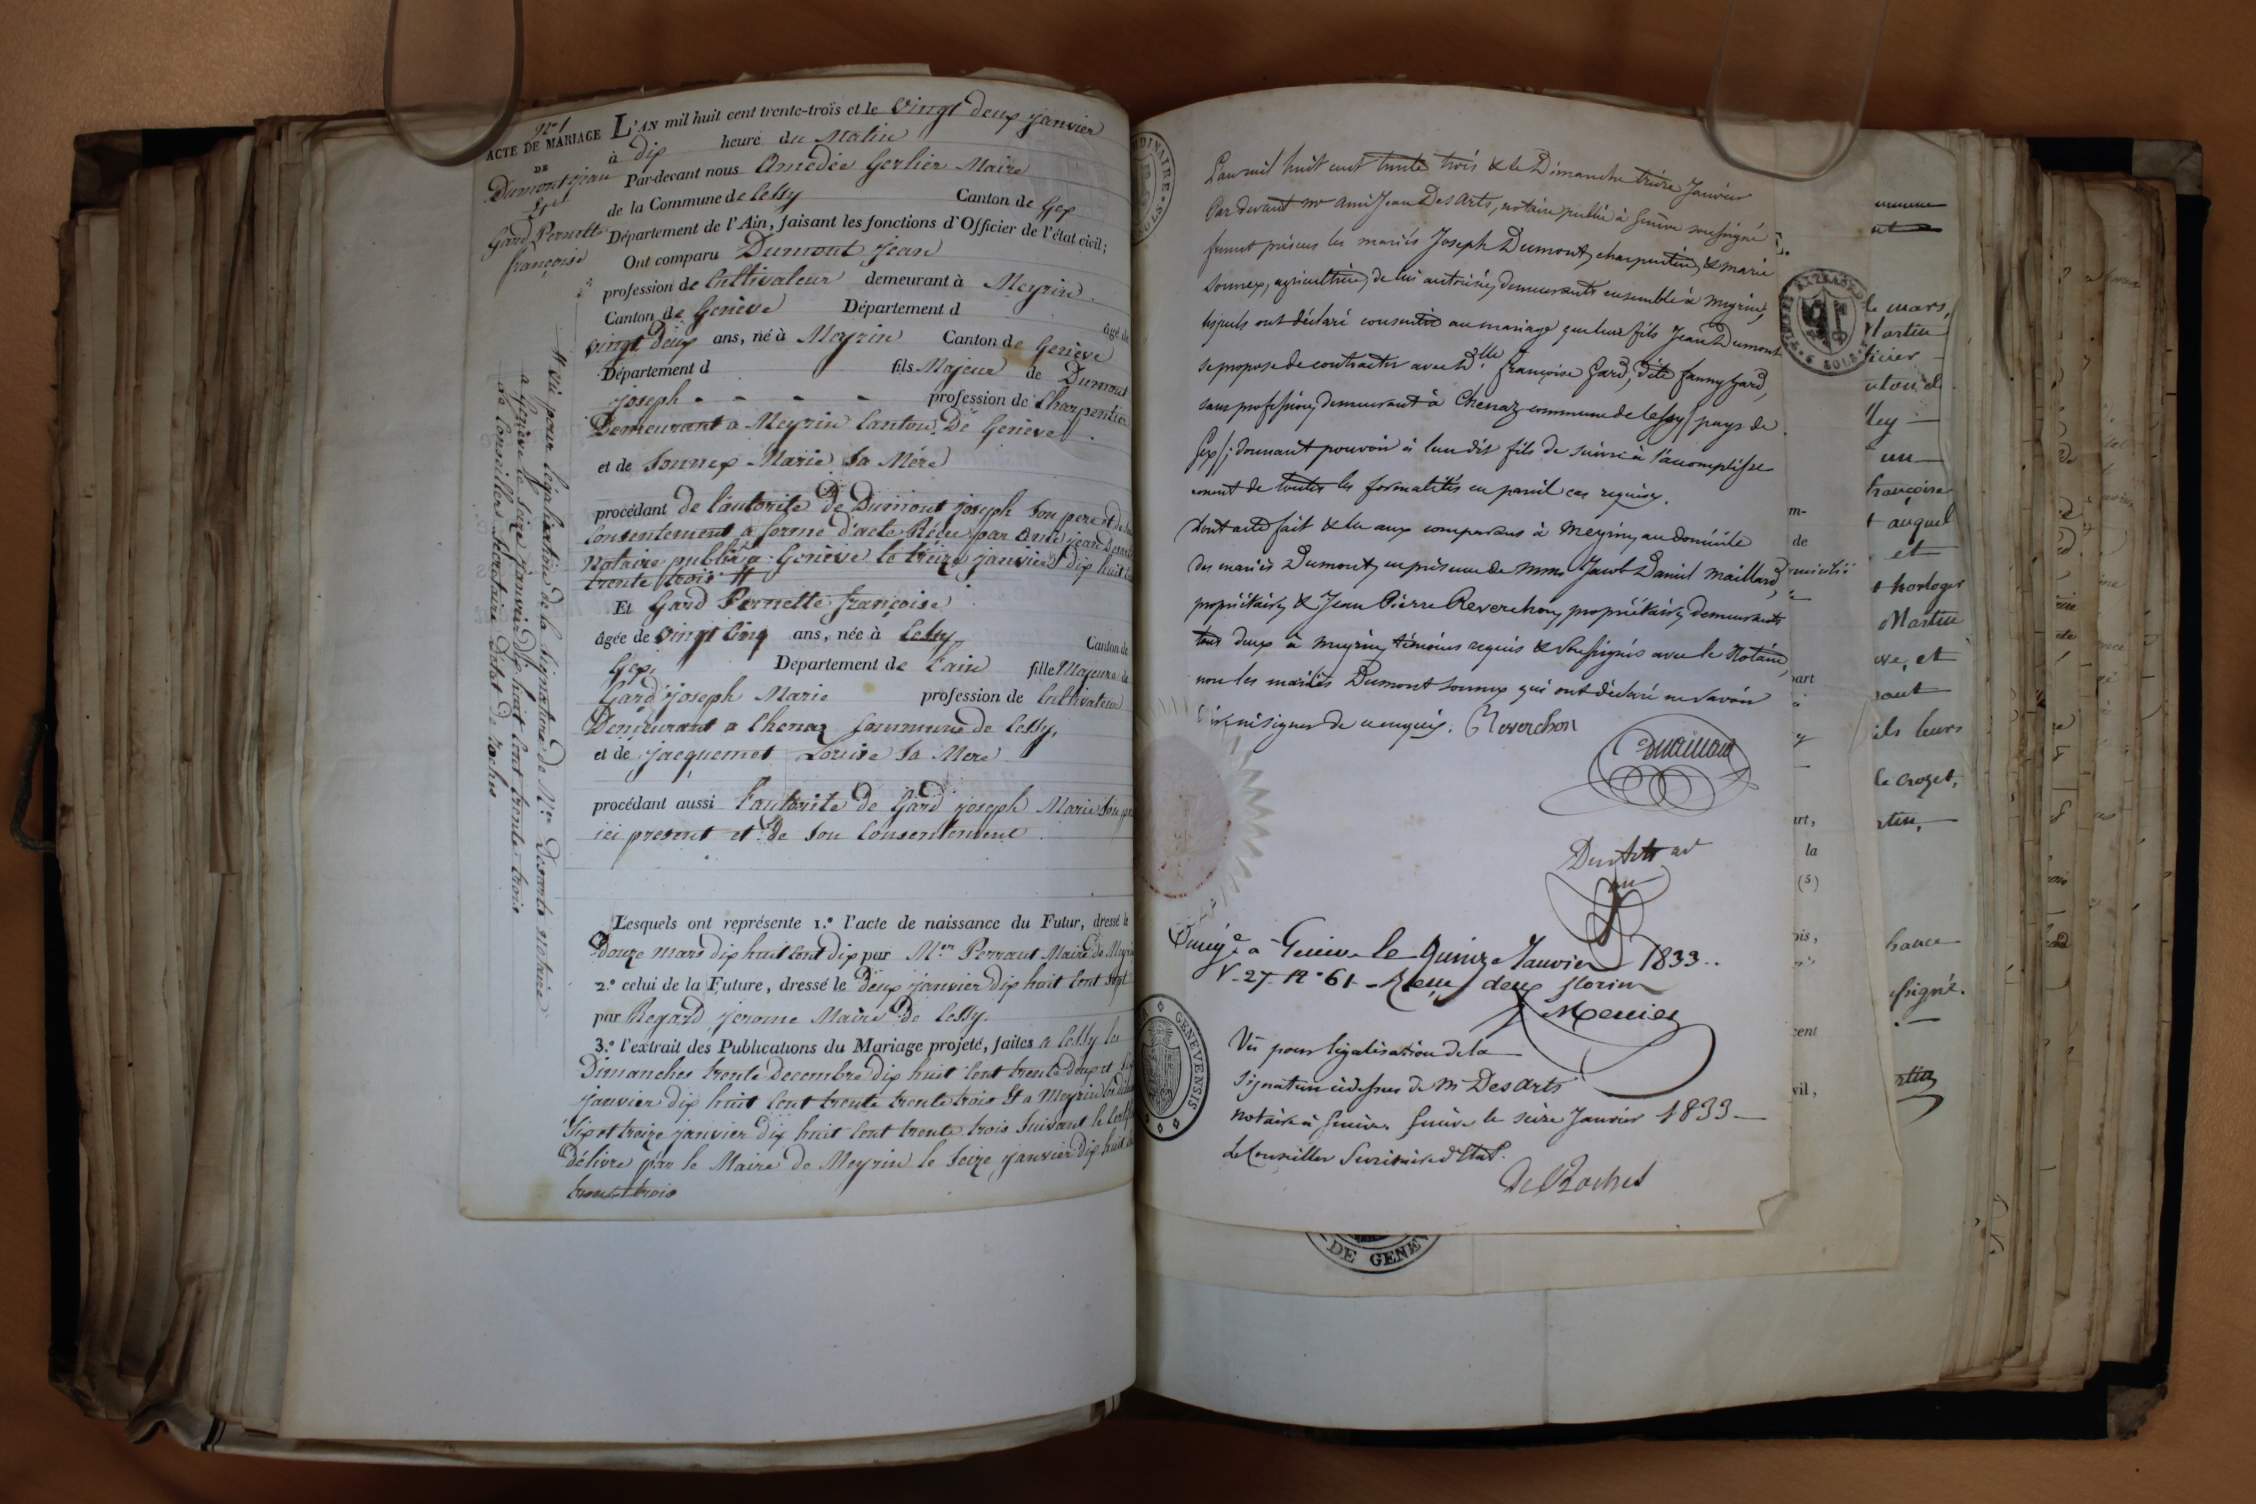 N° 1
ACTE DE MARIAGE
DE
Dumont jean
Et
Gard Pernette
françoise
L'AN mil huit cent trente-trois et le vingt deux janvier
à dix heure du Matin
Par-devant nous Amédée Gerlier Maire
de la Commune de Cessy Canton de Gex
Département de l'Ain, faisant les fonctions d'Officier de l'état civil;
Ont comparu Dumont jean
profession de Cultivateur demeurant à Meyrin
Canton de Genève Département d
âgé de
vingt deux ans, né à Meyrin Canton de Genève
Département d fils Majeur de Dumont
joseph - - - - profession de Charpentier
Demeurant a Meyrin Canton De Genève
et de Sonnex Marie Sa Mère
procédant de l'autorite de Dumont joseph Son pere et de
Consentement a forme d'acte Récu par Ami jean
Notaire public a Genève le treize janvier dix huit
trente trois #
Et Gard Pernette françoise
âgée de vingt Cinq ans, née à Cessy Canton de
Gex, Département de l'ain fille Majeure de
Gard joseph Marie profession de Cultivateur
Demeurant a Chenaz Commune de Cessy,
et de jacquemet Louise Sa Mere
procédant aussi l'autorite de Gard joseph Marie Son
ici present et de Son Consentement
Lesquels ont représente 1.° l'acte de naissance du Futur, dressé le
Douze mars dix huit Cent dix par M.r Perraut Maire de
2.° celui de la Future, dressé le deux janvier dix huit Cent Sept
par Regard jerome Maire de Cessy.
3.° l'extrait des Publications du Mariage projeté, faites a Cessy les
Dimanches trente Decembre dix huit Cent trente deux et
janvier dix huit Cent trente trente trois Et a Meyrin
Six et treize janvier dix huit Cent trente trois Suivant le
délivré par le Maire de Meyrin le Seize janvier dix huit
trente trois
# Vu pour légalisation de la Signature de M.re Desarts Notaire
a Genève le Seize janvier dix huit Cent trente trois
Le Conseiller Secretaire d'Etat de roches
L'an mil huit cent trente trois & le Dimanche treize Janvier
Par devant me Ami Jean DesArts, notaire public à Genève soussigné
furent présens les mariés Joseph Dumont, charpentier, & marie
Sonnex, agricultrice, de lui autorisée, demeurants ensemble à Meyrin,
lesquels ont déclaré consentir au mariage que leur fils Jean Dumont
se propose de contracter avec D.lle françoise Gard, dite fanny Gard,
sans profession, demeurant à Chenaz commune de Cessy / pays de
Gex /: donnant pouvoir à leur dit fils de suivre à l'accomplisse
ment de toutes les formalités en pareil cas requises.
Dont acte fait & lu aux comparans à Meyrin, au domicile
des mariés Dumont, en présence de Mrs Jacob Daniel Maillard,
propriétaire, & Jean Pierre Reverchon, propriétaire, demeurants
tous deux à Meyrin, témoins requis & soussignés avec le Notaire,
non les mariés Dumont Sonnex qui ont déclaré ne savoir
écrire ni signer de ce enquis. Reverchon
DMaillard
DesArts
Enreg.é à Genève le Quinze Janvier 1833.
V. 27. N° 61. Reçu deux florins
Vu pour légalisation de la
Signature ci dessus de Mr DesArts
notaire à Genève. Genève le seize Janvier 1833
Le Conseiller Secrétaire d'Etat.
DeRoches
GENEVENSIS
DE GENEV
le mars,
Martin
ficier
françoise
auquel
et
horloger
Martin
ils leurs
le crozet,